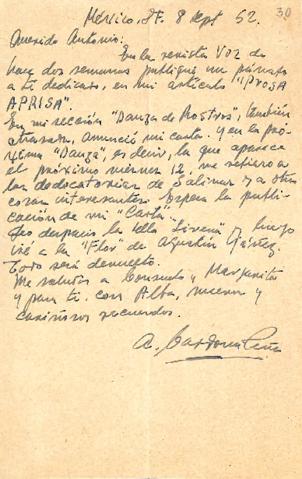 30
México, D.F. 8 sept 52.
Querido Antonio:
En la revista VOZ de
hace dos semanas publiqué un párrafo
a ti dedicado, en mi artículo "PROSA
APRISA".
En mi sección "Danza de Rostros", también
atrasada, anuncié mi carta. Y en la pró-
xima "Danza", es decir, la que aparece
el próximo viernes 12, me refiero a
las dedicatorias de Salinas y a otras
cosas interesantes. Espera la publi-
cación de mi "Carta".
después la bella "Sirena" y luego
iré a la "Flor" de Agustín Yáñez.
Todo será devuelto.
Me saludas a Consuelo y Margarita
y para ti, con Alba, nuevos y
cariñosos recuerdos.
A. Cardona Peña